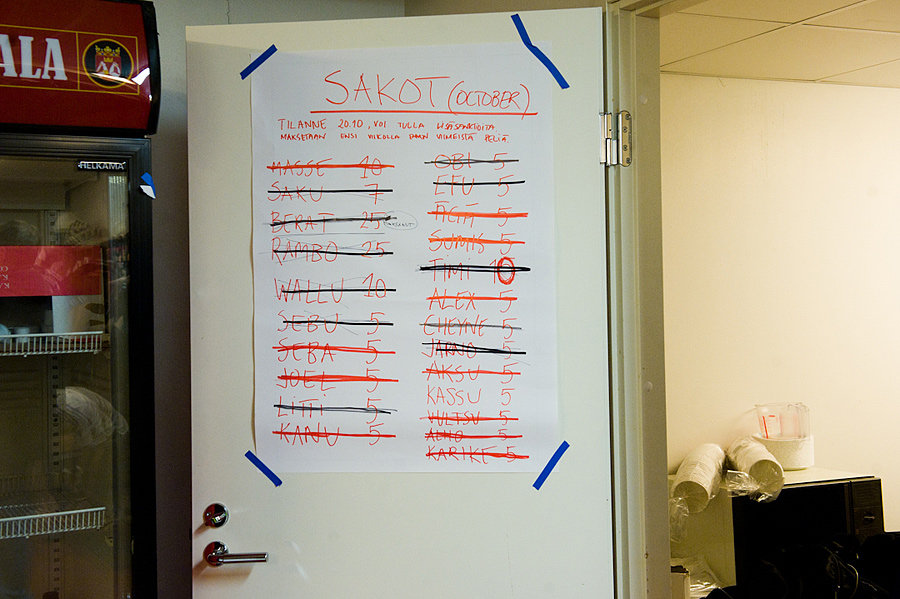 ALA
HELKAMA
SAKOT (OCTOBER)
TILANNE 20.10, VOI TULLA LISÄSANKTOITA.
MAKSETAAN ENSI VIIKOLLA ENNEN VIIMEISTÄ PELIÄ.
MASSE 10
SAKU 7
BERAT 25
RAMBO 25
WALLU 10
SEBU 5
SEBA 5
JOEL 5
LITTI 5
KANU 5
OBI 5
EFU 5
SUMIS 5
TIMI 10
ALEX 5
CHEYNE 5
JARNO 5
AKSU 5
KASSU 5
VULTSU 5
5
KARIKE 5